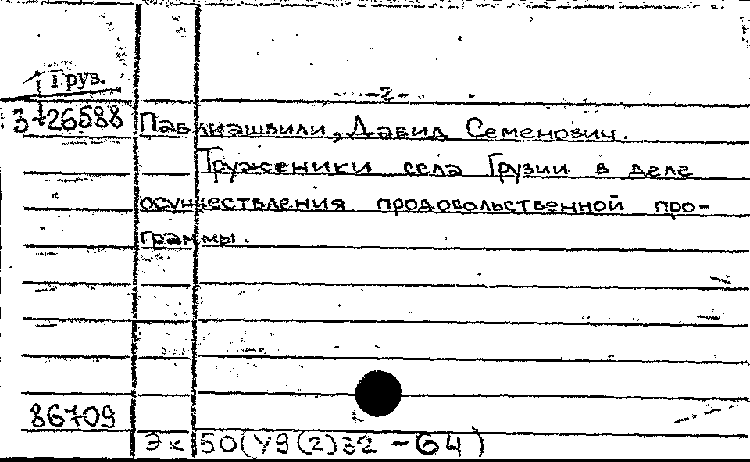 Груз.
-2-
3-26588
Павлиашвили, Давид Семенович.
Труженики села Грузии в деле
осуществления продовольственной про-
граммы.
86709
Эк 50(У9(2)32-64)